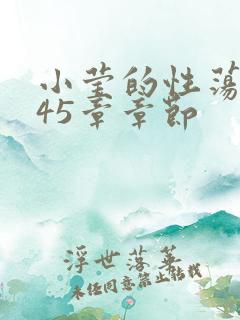 小莹的性荡
45章章节
浮世落华
未经同意禁止转载